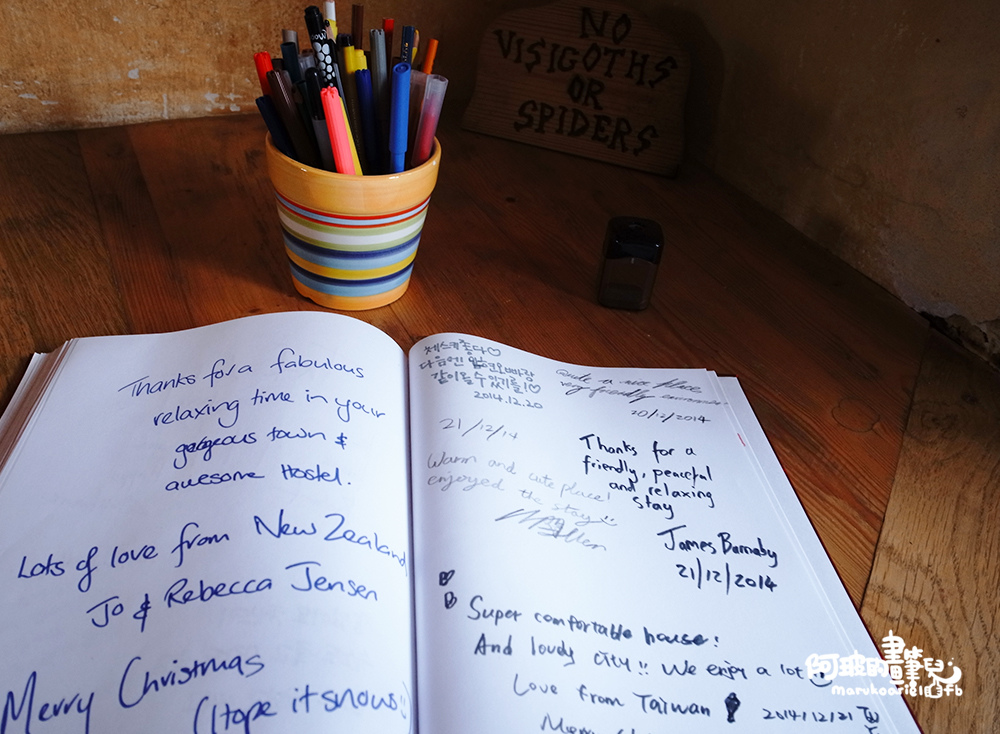 NO
VISIGOTHS
OR
SPIDERS
Thanks for a fabulous
relaxing time in your
gorgeous town &
awesome Hostel.
Lots of love from New Zealand
Jo & Rebecca Jensen
Merry Christmas
(Hope it snows
체스키좋다♡
다음엔
같이올수있기를!♡
2014.12.20
nice place
very friendly
20/12/2014
21/12/14
Warm and cute place!
enjoyed the stay
Thanks for a
friendly, peaceful
and relaxing
stay
James Barnaby
21/12/2014
Super comfortable house!
And lovely city!! We enjoy a lot
Love from Taiwan
2014/12/21
阿玻的畫筆兒
marukoariel@fb